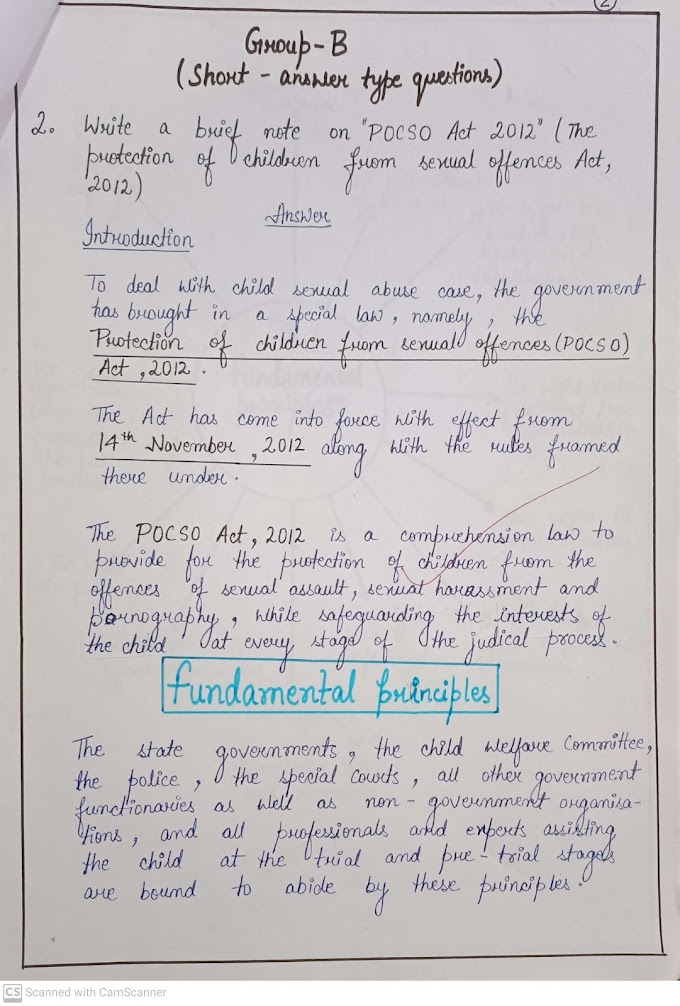 2
Group-B
(Short - answer type questions)
2. Write a brief note on "POCSO Act 2012" (The
protection of children from sexual offences Act,
2012)
Answer
Introduction
To deal with child sexual abuse case, the government
has brought in a special law, namely, the
Protection of children from sexual offences (POCSO)
Act, 2012.
The Act has come into force with effect from
14th November, 2012 along with the rules framed
there under.
The POCSO Act, 2012 is a comprehension law to
provide for the protection of children from the
offences of sexual assault, sexual harassment and
pornography, while safeguarding the interests of
the child at every stage of the judical process.
fundamental principles
The state governments, the child welfare Committee,
the police, the special Courts, all other government
functionaries as well as non-government organisa-
tions, and all professionals and experts assisting
the child at the trial and pre-trial stages
are bound to abide by these principles.
CS Scanned with CamScanner